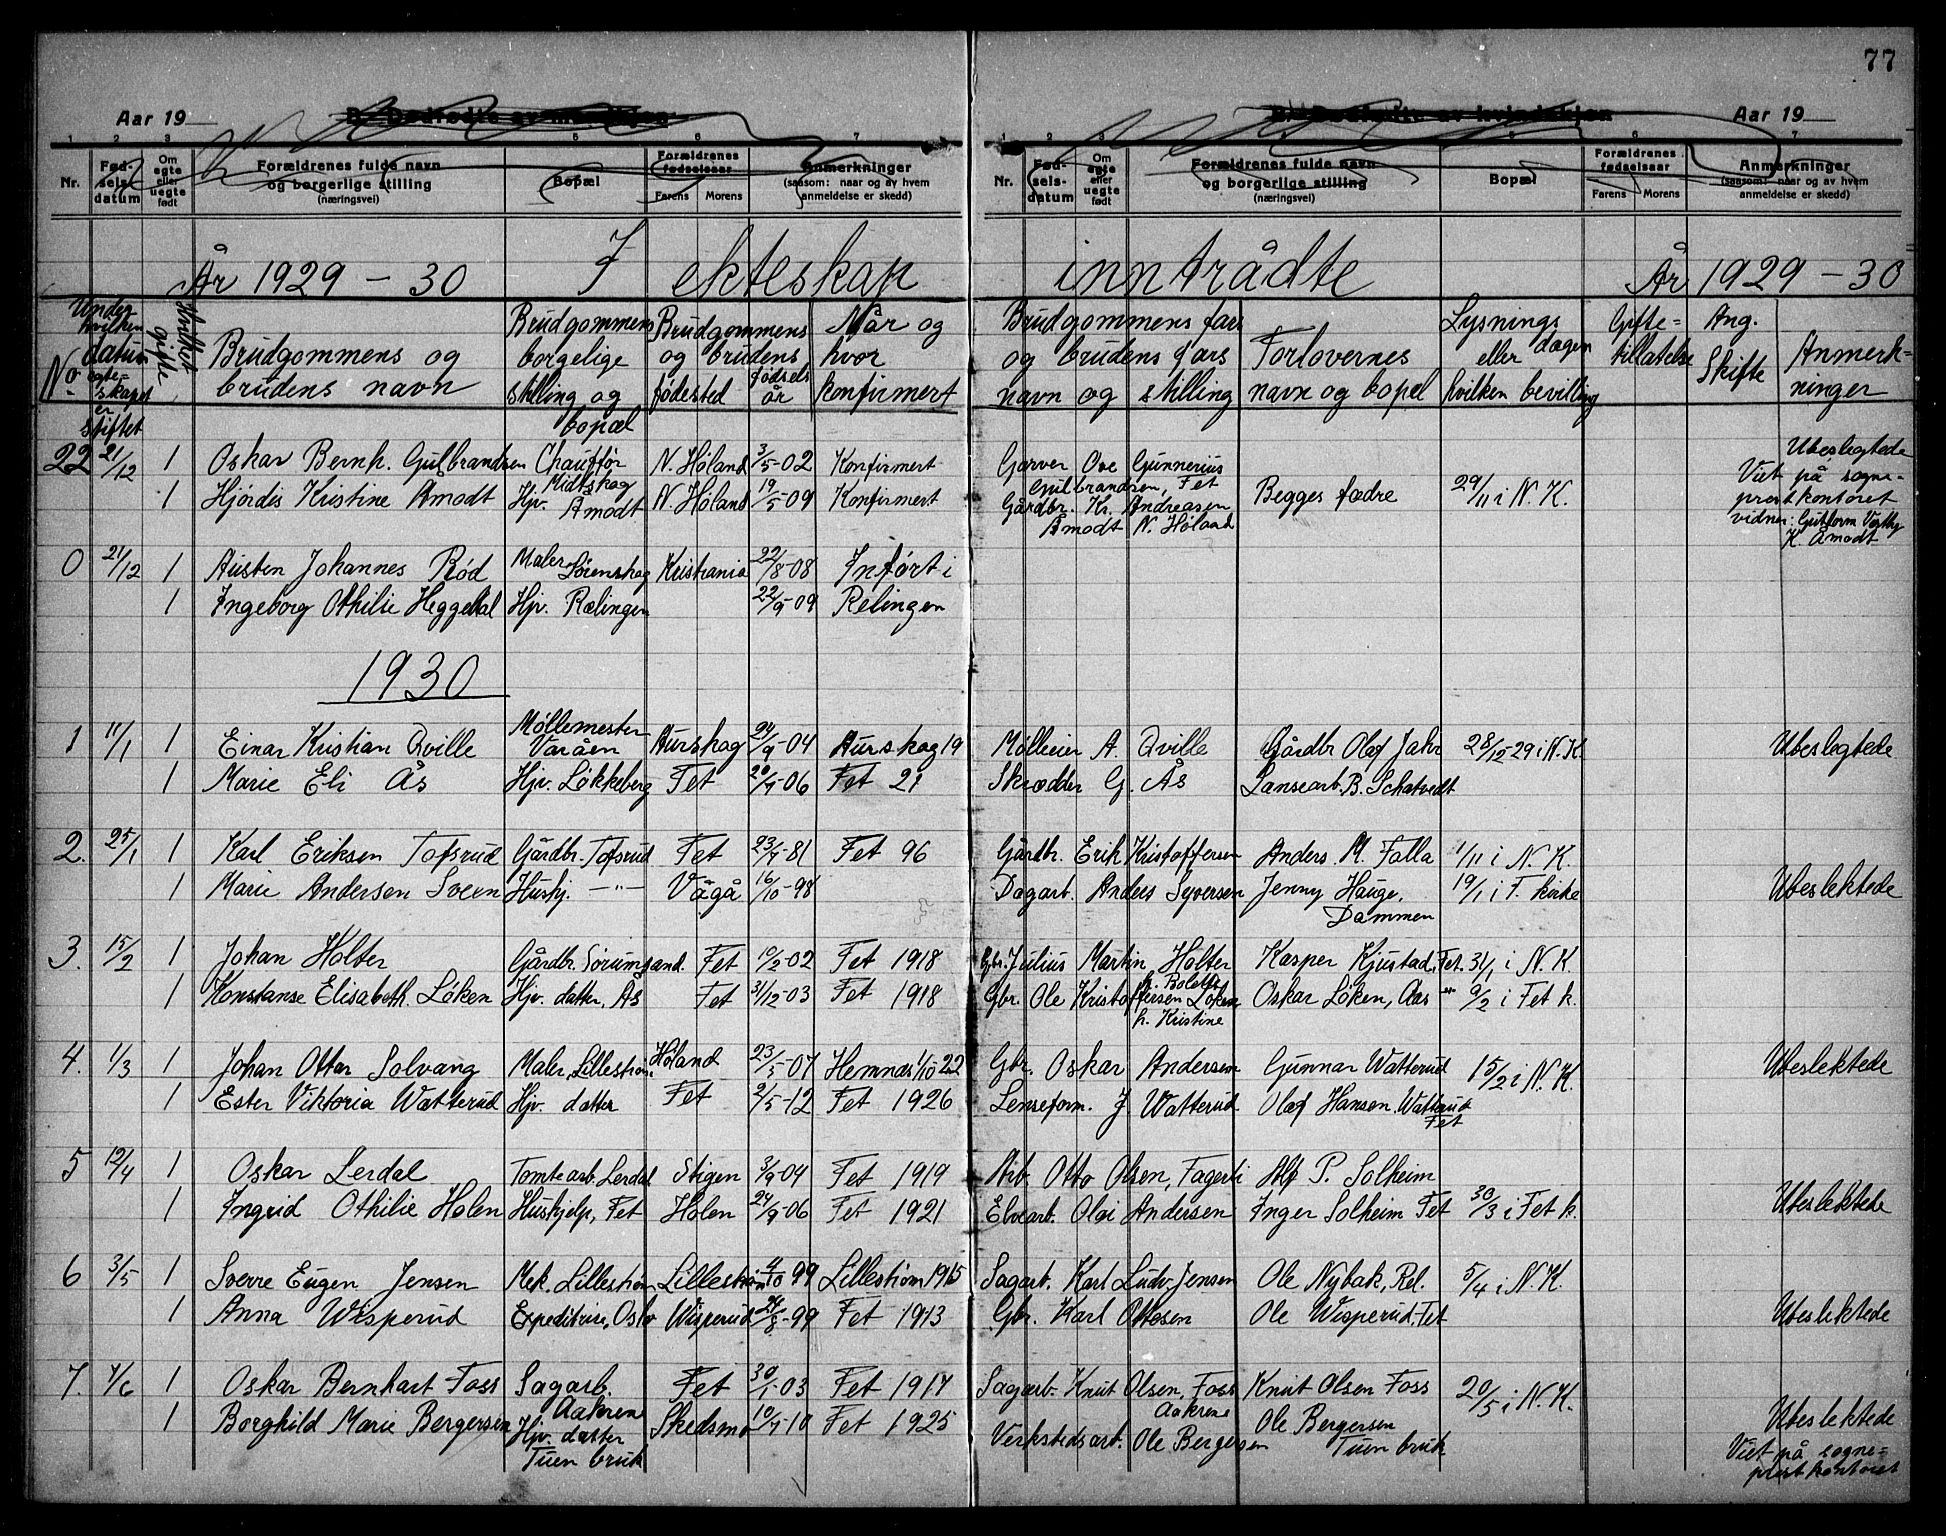 77
Aar 19 D. Dødfødte av mandkjøn. D. Dødfødte av kvindekjøn Aar 19
1 2 3 5 6 7 1 2 3 5 6 7
Nr. Fød-selsdatum Om egte eller uegte født Forældrenes fulde navn og borgerlige stilling (næringsvei) Bopæl Forældrenes fødselsaar Farens Morens Anmerkninger (saasom: naar og av hvem anmeldelse er skedd)
Nr. Fød-sels-datum Om egte eller uegte født Forældrenes fulde navn og borgerlige stilling (næringsvei) Bopæl Forældrenes fødselsaar Farens Morens Anmerkninger (saasom: naar og av hvem anmeldelse er skedd)
År 1929 - 30 I ekteskap inntrådte År 1929 - 30
No Under hvilken datum egte-skapet er stiftet
Brudgommens og brudens navn
Brudgommens borgelige stilling og bopæl
Brudgommens og brudens fødested fødselsår
Når og hvor konfirmert
Brudgommens fars og brudens fars navn og stilling
Forlovernes navn og bopel
Lysnings dagen eller hvilken bevilling
Gifte=tillatelse
Ang. Skifte
Anmerk-ninger
22 21/12 1 Oskar Bernh. Gulbrandsen Chauffør Midtskog N. Høland 3/5-02 Konfirmert Garver Ove Gunnerius Gulbrandsen, Fet
1 Hjørdis Kristine Åmodt Hjv. Åmodt N. Høland 19/5-09 Konfirmert Gårdbr. Kr. Andreasen Åmodt N. Høland Begges fædre 29/11 i N. K.
Ubeslegtede
Viet på sogne-
prestkontoret
vidner: Guttorm
K. Åmodt
0 21/12 1 Austen Johannes Rød Maler Lørenskog Kristiania 22/8-08 Inført i
1 Ingeborg Othilie Heggedal Hjv. Rælingen 22/9-09 Relingen
1930
1 11/1 1 Einar Kristian Qville Møllemester Varåen Aurskog 24/9-04 Aurskog 19 Mølleier A. Qville Gårdbr Olaf Jahr 28/12-29 i N. K. Ubeslegtede
1 Marie Eli Ås Hjv. Løkkeberg Fet 20/7-06 Fet 21 Skrædder G. Ås Lansearb. B. Schatvedt
2. 25/1 1 Karl Eriksen Tofsrud Gårdbr. Tofsrud Fet 23/7-81 Fet 96 Gårdbr. Erik Kristoffersen Anders M. Falla 1/11 i N. K.
1 Marie Andersen Sveen Hushj. -"- Vågå 16/10-98 Dagarb. Anders Syversen Jenny Hauge, Dammen 19/1 i F. kirke Ubeslektede
3. 15/2 1 Johan Holter Gårdbr. Sørumsand. Fet 10/2-02 Fet 1918 Gbr. Julius Martin Holter h. Bolette Kasper Kjustad, Fet. 31/1 i N. K.
1 Konstanse Elisabeth. Løken Hjv. datter, Ås Fet 31/12-03 Fet 1918 Gbr. Ole Kristoffersen Løken h. Kristine Oskar Løken, Aas -"- 9/2 i Fet k.
4. 1/3 1 Johan Ottar Solvang Maler, Lillestrøm Høland 23/5-07 Hemnes 1/10 22 Gbr. Oskar Andersen Gunnar Watterud 15/2 i N. K. Ubeslektede
1 Ester Viktoria Watterud Hjv. datter Fet 2/5-12 Fet 1926 Lenseform. J Watterud. Olaf Hansen. Watterud Fet
5 12/4 1 Oskar Lerdal Tomtearb. Lerdal Stigen 3/9-04 Fet 1919 Arb. Otto Olsen, Fagerli Alf P. Solheim
1 Ingrid Othilie Holen Hushjelp, Fet Holen 24/9-06 Fet 1921 Elvearb. Olai Andersen Inger Solheim Fet 30/3 i Fet k. Ubeslektede
6 3/5 1 Sverre Eugen Jensen Mek. Lillestrøm Lillestrøm 4/10 99 Lillestrøm 1915 Sagarb. Karl Ludv. Jensen Ole Nybak, Rel. 5/4 i N. K.
1 Anna Wisperud Expeditrise, Oslo Wisperud 24/8-99 Fet 1913 Gbr. Karl Ottesen Ole Wisperud, Fet Ubeslektede
7. 7/6 1 Oskar Bernhart Foss Sagarb. Aakrene Fet 30/1-03 Fet 1917 Sagarb. Knut Olsen, Foss Aakrene Knut Olsen Foss 20/5 i N. K.
1 Borghild Marie Bergersen Hjv. datter Tuen bruk Skedsmo 10/7-10 Fet 1925 Verkstedsarb. Ole Bergersen Ole Bergersen Tuen bruk Ubeslektede
Viet på sogne=
prestkontoret